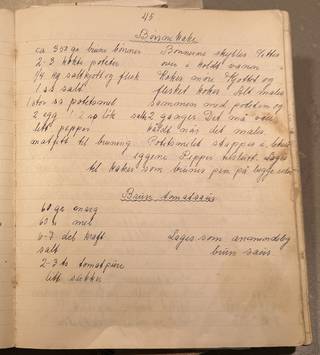 45
Bønnekake
ca. 350 gr brune bønner Bønnene skylles settes
2-3 kokte poteter over i koldt vann
1/4 kg saltkjøtt og flesk Kokes møre Kjøttet og
1 ss salt flesket kokes Alt males
1 stor ss potetmel sammen med potetene og
2 egg 1/2 ss løk salt 2 ganger. Det må være
litt pepper kaldt når det males
matfett til bruning Potetmelet
eggene Pepper Lages
til kaker som brunes pen på begge sider
Brun tomatsaus
60 gr
60 " mel
6-7 del kraft Lages som
salt brun saus
2-3 ts tomatpure
litt sukker